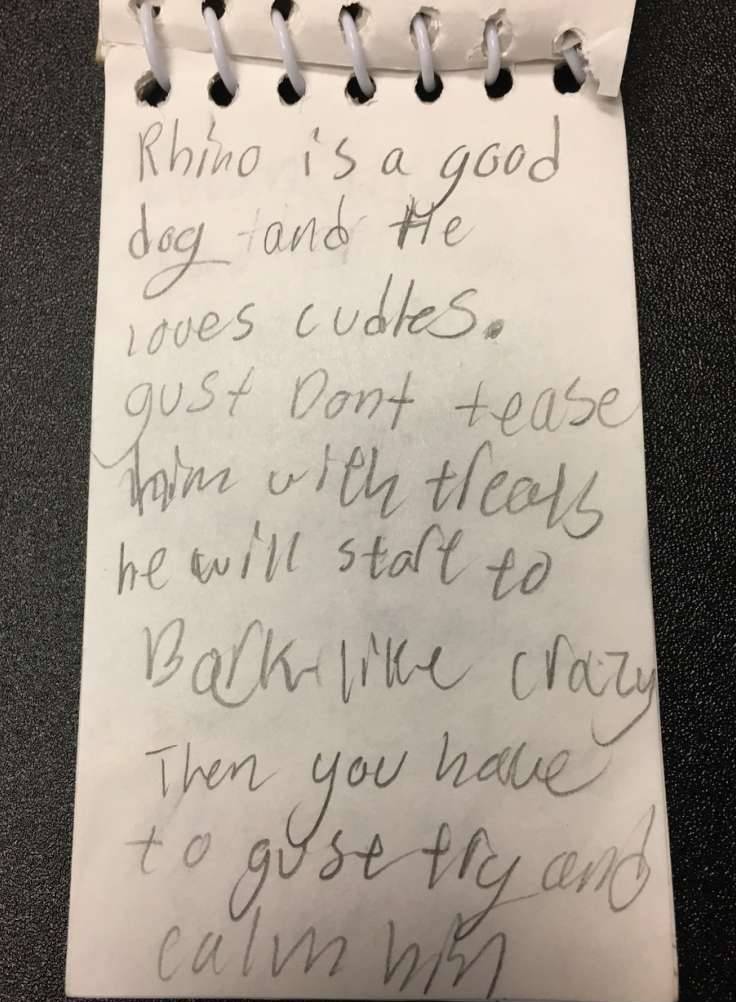 Rhino is a good
dog and He
loves cudles.
gust Dont tease
him with treats
he will start to
Bark like crazy
Then you have
to guse try and
calm him